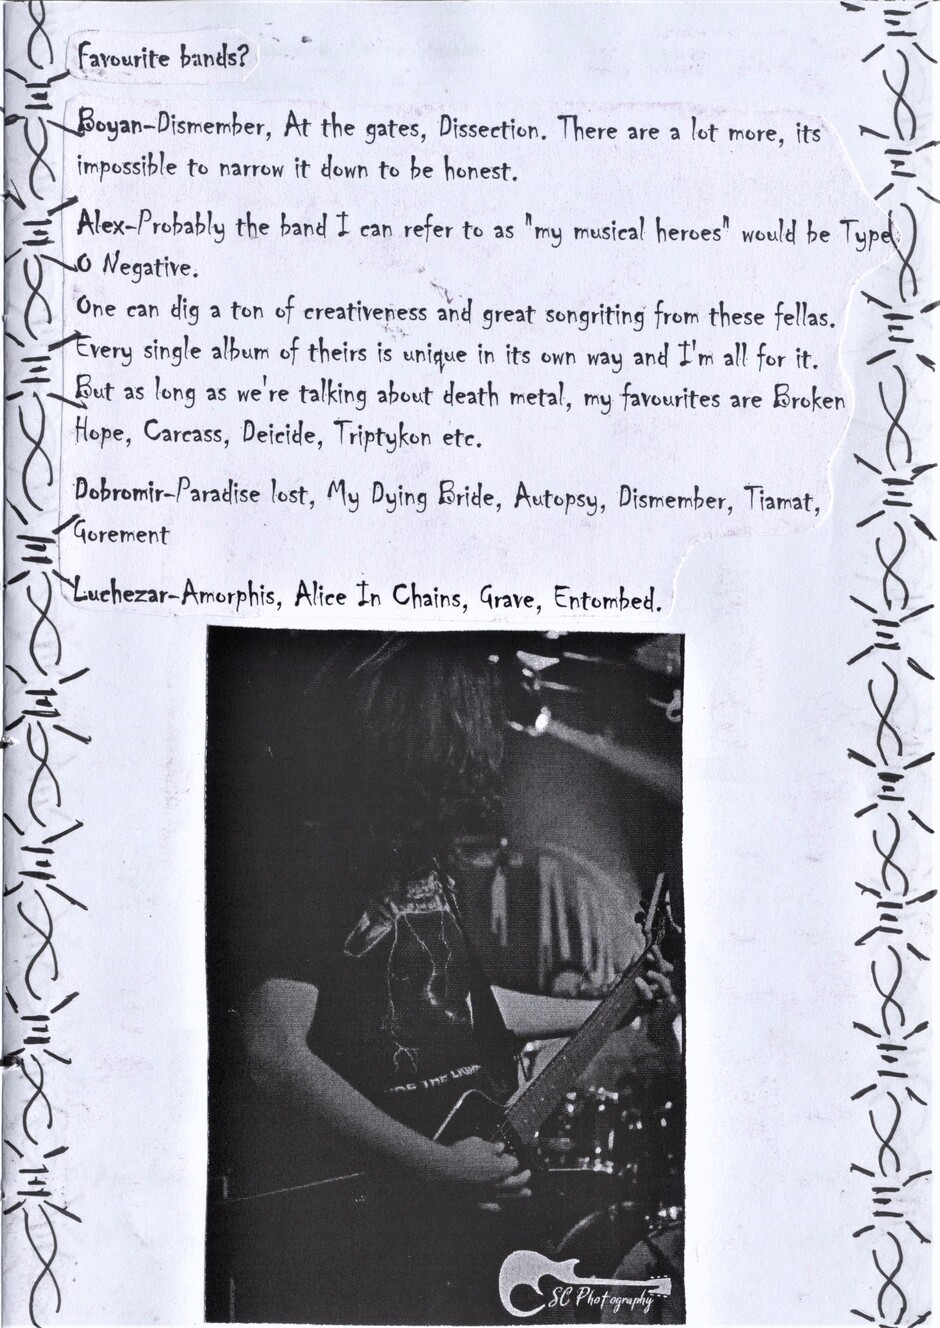 Favourite bands?
Boyan-Dismember, At the gates, Dissection. There are a lot more, its
impossible to narrow it down to be honest.
Alex-Probably the band I can refer to as "my musical heroes" would be Type
O Negative.
One can dig a ton of creativeness and great songriting from these fellas.
Every single album of theirs is unique in its own way and I'm all for it.
But as long as we're talking about death metal, my favourites are Broken
Hope, Carcass, Deicide, Triptykon etc.
Dobromir-Paradise lost, My Dying Bride, Autopsy, Dismember, Tiamat,
Gorement
Luchezar-Amorphis, Alice In Chains, Grave, Entombed.
THE LIGH
SC Photography